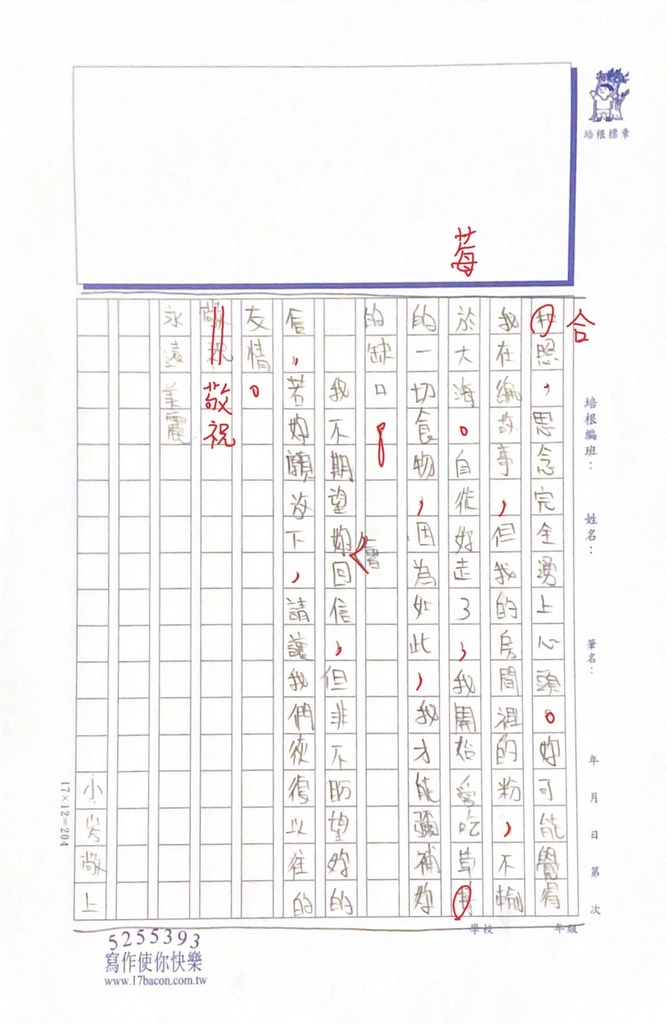 培根標章
莓
合
照，思念完全湧上心頭。妳可能覺得
我在編故事，但我的房間裡的粉，不輸
於大海。自從妳走了，我開始愛吃草
的一切食物，因為如此，我才能彌補妳
的缺口。
會
我不期望妳回信，但非不盼望妳的
信，若妳願放下，請讓我們恢復以往的
友情。
敬祝
敬祝
永遠美麗
小芳敬上
培根編班：
姓名：
筆名：
年 月 日 第 次
學校 年級
17×12=204
5255393
寫作使你快樂
www.17bacon.com.tw